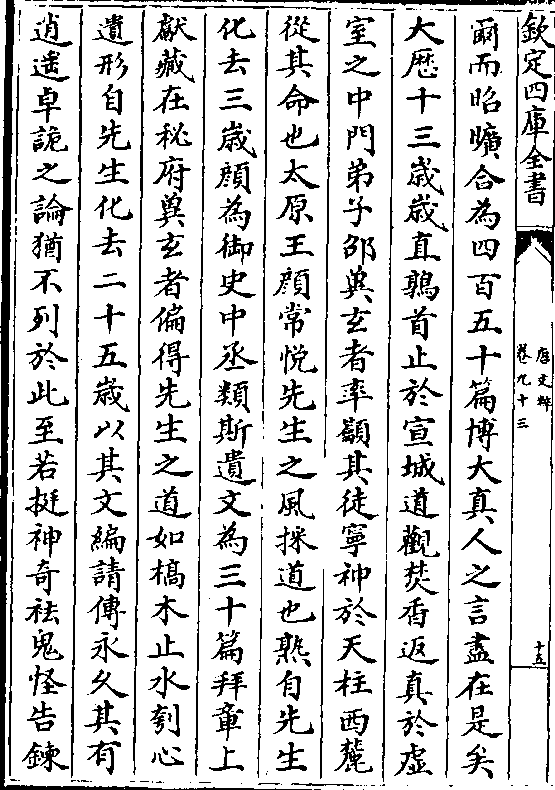 欽定四庫全書
唐文粹
卷九十三
十五
爾而昭曠合為四百五十篇博大真人之言盡在是矣
大厯十三歳歳直鶉首止於宣城道觀焚香返真於虚
室之中門弟子邵兾玄者率顓其徒寧神於天柱西麓
從其命也太原王顔常悦先生之風採道也熟自先生
化去三歳顔為御史中丞類斯遺文為三十篇拜章上
獻藏在秘府兾玄者偏得先生之道如槁木止水刳心
遺形自先生化去二十五歳以其文編請傳永久其有
逍遥卓詭之論猶不列於此至若挺神奇祛鬼怪告鍊